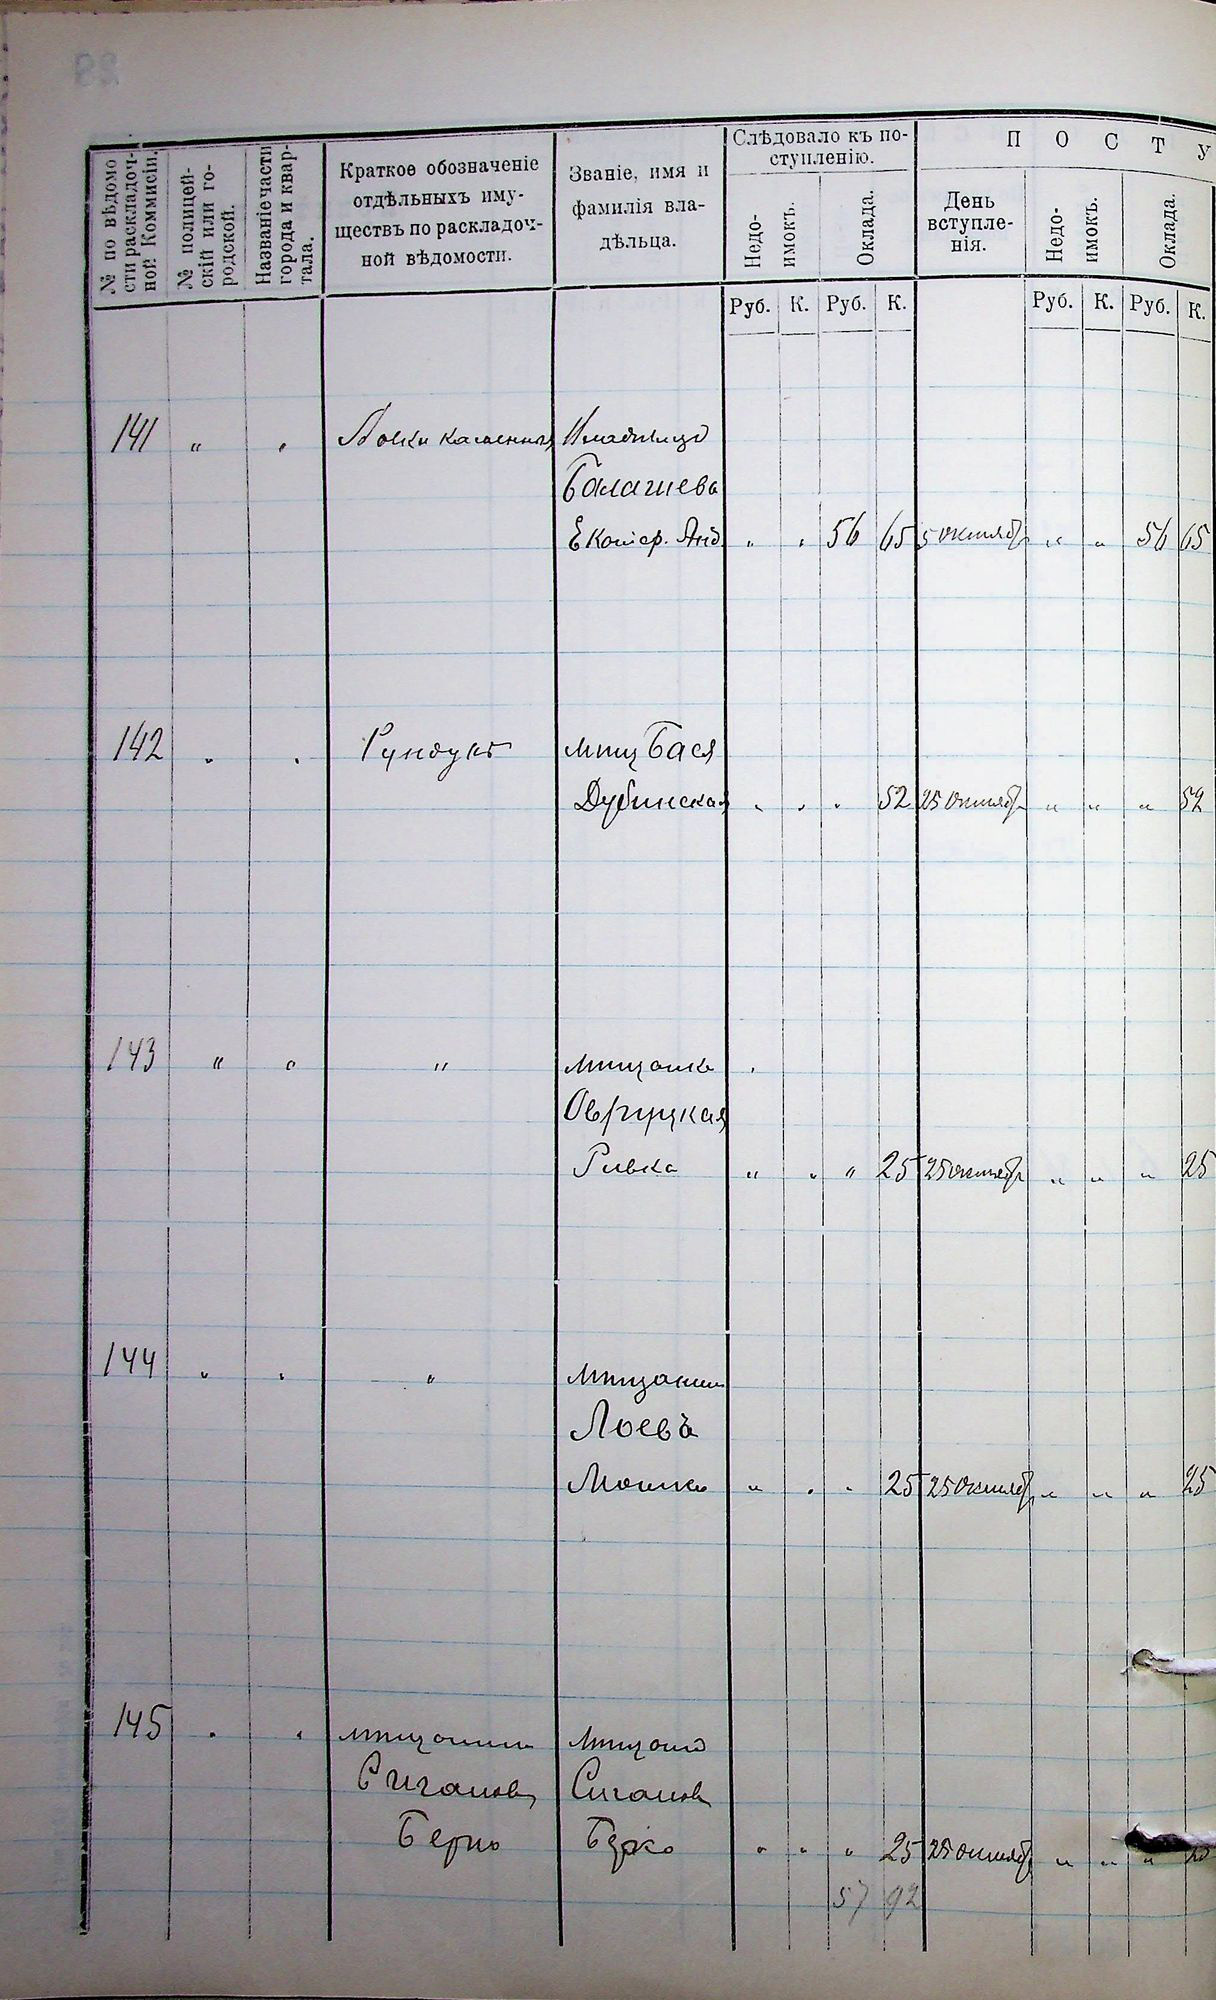 № по вѣдомо
сти раскладоч-
ной Коммисіи.
№ полицей-
скій или го-
родской.
Названіе части
города и квар-
тала.
Краткое обозначеніе
отдѣльныхъ иму-
ществъ по раскладоч-
ной вѣдомости.
Званіе, имя и
фамилія вла-
дѣльца.
Слѣдовало къ по-
ступленію.
Недо-
имокъ.
Оклада.
П О С Т У
День
вступле-
нія.
Недо-
имокъ.
Оклада.
Руб. К. Руб. К. Руб. К. Руб. К.
141 " " Лавки каменныя
Балашева
Екатер. Анд. " " 56 65 5 октябр " " 56 65
142 " " Рундукъ мѣщ Бася
Дубинская " " " 52 25 октябр " " " 52
143 " " " мѣщанка "
Овруцкая
Ривка " " " 25 25 октябр " " " 25
144 " " " мѣщанин
Лоевъ
Мошко " " " 25 25 октябр " " " 25
145 " " мѣщанин мѣщани
Сигалов Сигалов
Берко Берко " " " 25 25 октябр " " "
57 92